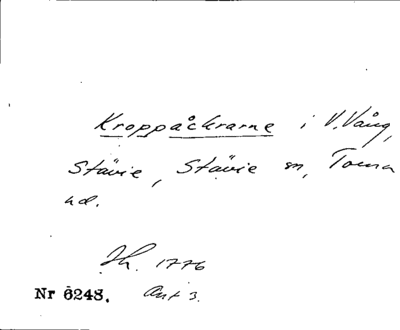 Kroppåckrarne i V. Vång,
Stävie, Stävie sn, Torna
hd.
Jh. 1776
Nr 6248. Akt 3.